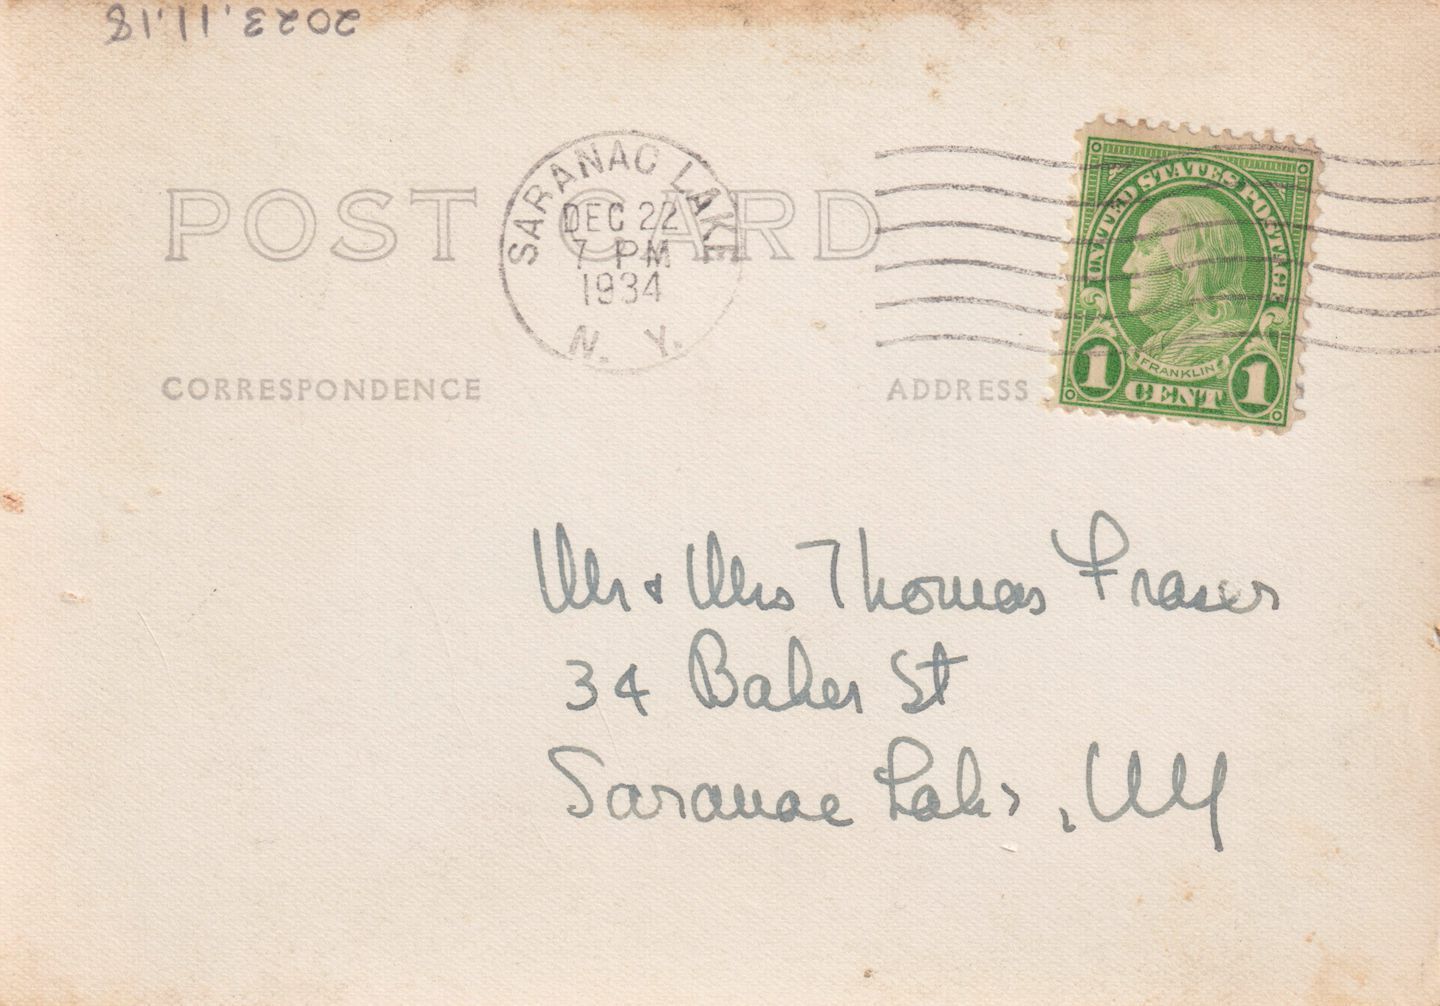 2023.11.18
POST CARD
SARANAC LAKE
DEC 22
7 PM
1934
N. Y.
UNITED STATES POSTAGE
FRANKLIN
1 CENT 1
CORRESPONDENCE
ADDRESS
Mr & Mrs Thomas Fraser
34 Baker St
Saranac Lake, NY